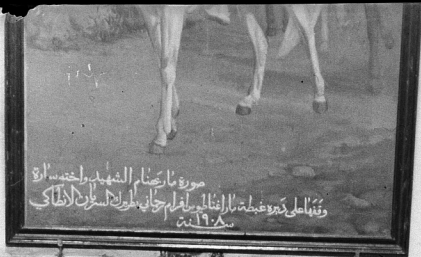 صورة مار بهنام الشهيد واخته سارة
وقفها على ديره غبطة مار اغناطيوس افرام رحماني بطريرك السريان الانطاكي
سنة ١٩٠٨